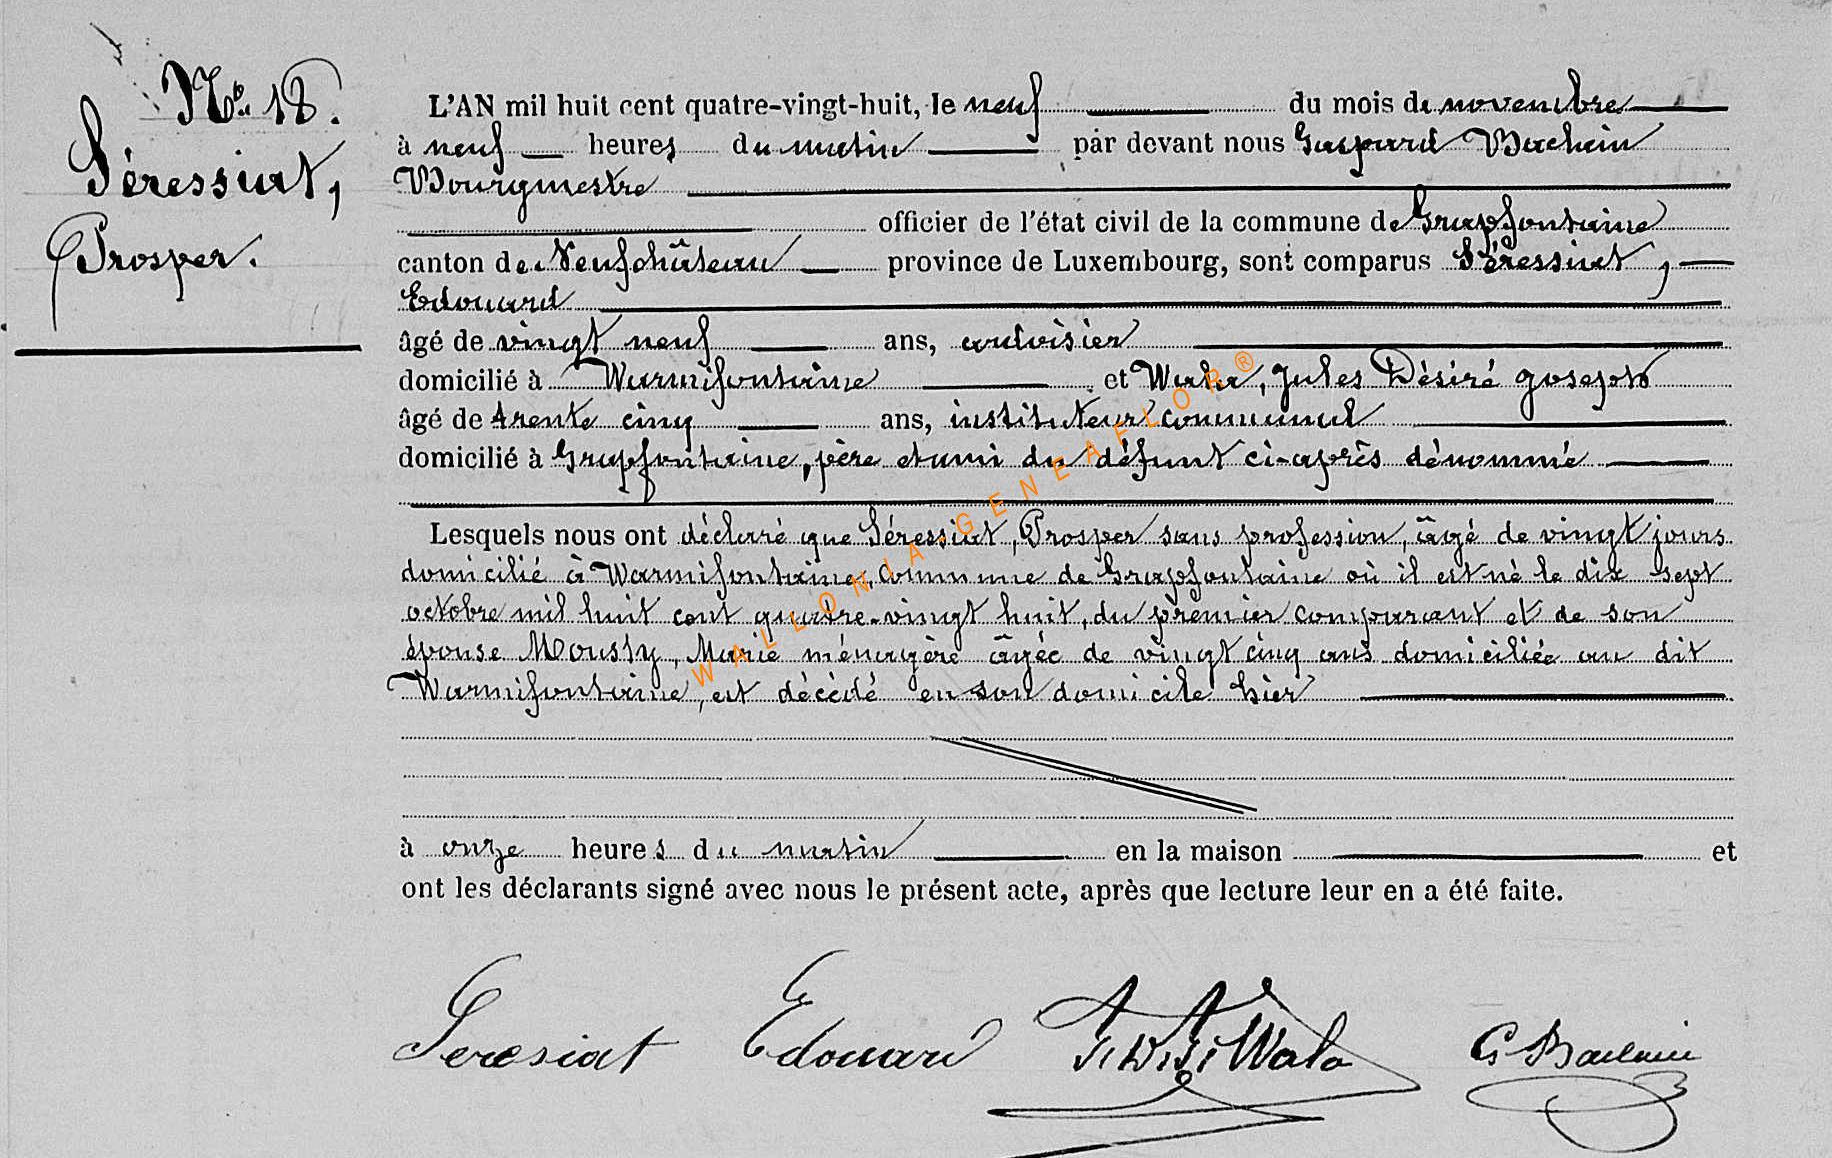 No 18.
Séressiat,
Prosper.
L'AN mil huit cent quatre-vingt-huit, le neuf du mois de novembre
à neuf heures du matin par devant nous Gaspard Bachain
Bourgmestre
officier de l'état civil de la commune de Grapfontaine
canton de Neufchâteau province de Luxembourg, sont comparus Séressiat,
Edouard
âgé de vingt neuf ans, ardoisier
domicilié à Warmifontaine et Waha, Jules Désiré Joseph
âgé de trente cinq ans, instituteur communal
domicilié à Grapfontaine, père et ami du défunt ci-après dénommé
Lesquels nous ont déclaré que Séressiat, Prosper sans profession, âgé de vingt jours
domicilié à Warmifontaine, commune de Grapfontaine où il est né le dix sept
octobre mil huit cent quatre-vingt huit, du premier comparant et de son
épouse Moussy, Marie ménagère âgée de vingt cinq ans domiciliée au dit
Warmifontaine, est décédé en son domicile hier
à onze heures du matin en la maison et
ont les déclarants signé avec nous le présent acte, après que lecture leur en a été faite.
Seresiat Edouard J.D.J. Waha G Bachain
WALLONIA-GENEAFLOR®